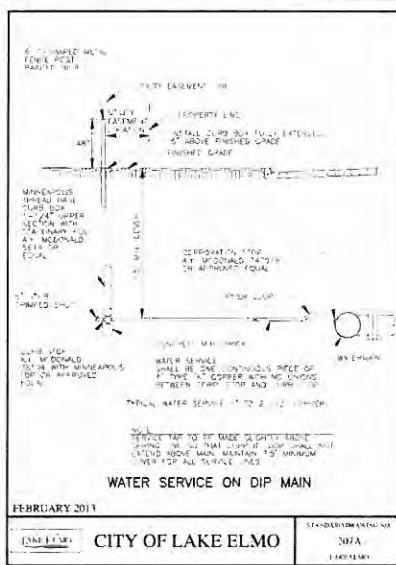 FENCE POST
UTILITY EASEMENT LINE
UTILITY
EASEMENT
LOCATION
PROPERTY LINE
INSTALL CURB BOX FULLY EXTENDED
6" ABOVE FINISHED GRADE
FINISHED GRADE
48"
MINNEAPOLIS
THREAD BASE
CURB BOX
1-1/4" UPPER
SECTION WITH
STATIONARY ROD
A.Y. MCDONALD
OR
EQUAL
MIN. COVER
CORPORATION STOP
A.Y. MCDONALD
OR APPROVED EQUAL
CURB STOP
A.Y. MCDONALD
WITH MINNEAPOLIS
TOP OR APPROVED
EQUAL
CONCRETE
BRICK
WATER SERVICE
SHALL BE ONE CONTINUOUS PIECE OF
TYPE "K" COPPER WITH NO UNIONS
BETWEEN CORP. STOP AND CURB STOP
WATERMAIN
TYPICAL WATER SERVICE 1" TO 2"
NOTE
SERVICE TAP TO BE MADE SLIGHTLY ABOVE
SPRING LINE SO THAT COPPER LOOP SHALL NOT
EXTEND ABOVE MAIN. MAINTAIN 7.5' MINIMUM
COVER FOR ALL SERVICE LINES
WATER SERVICE ON DIP MAIN
FEBRUARY 2013
LAKE ELMO
CITY OF LAKE ELMO
STANDARD DRAWING NO.
207A
LAKE ELMO